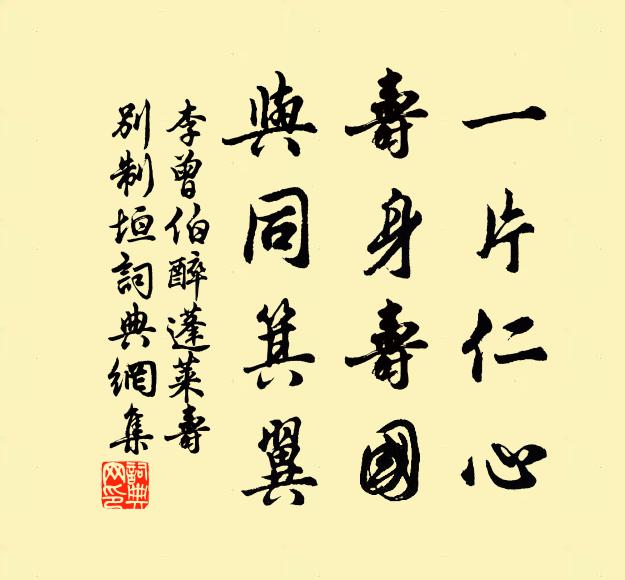 一片仁心
壽身壽國
與同箕翼
李曾伯醉蓬萊壽
別制垣詞典網集
詞典
网印